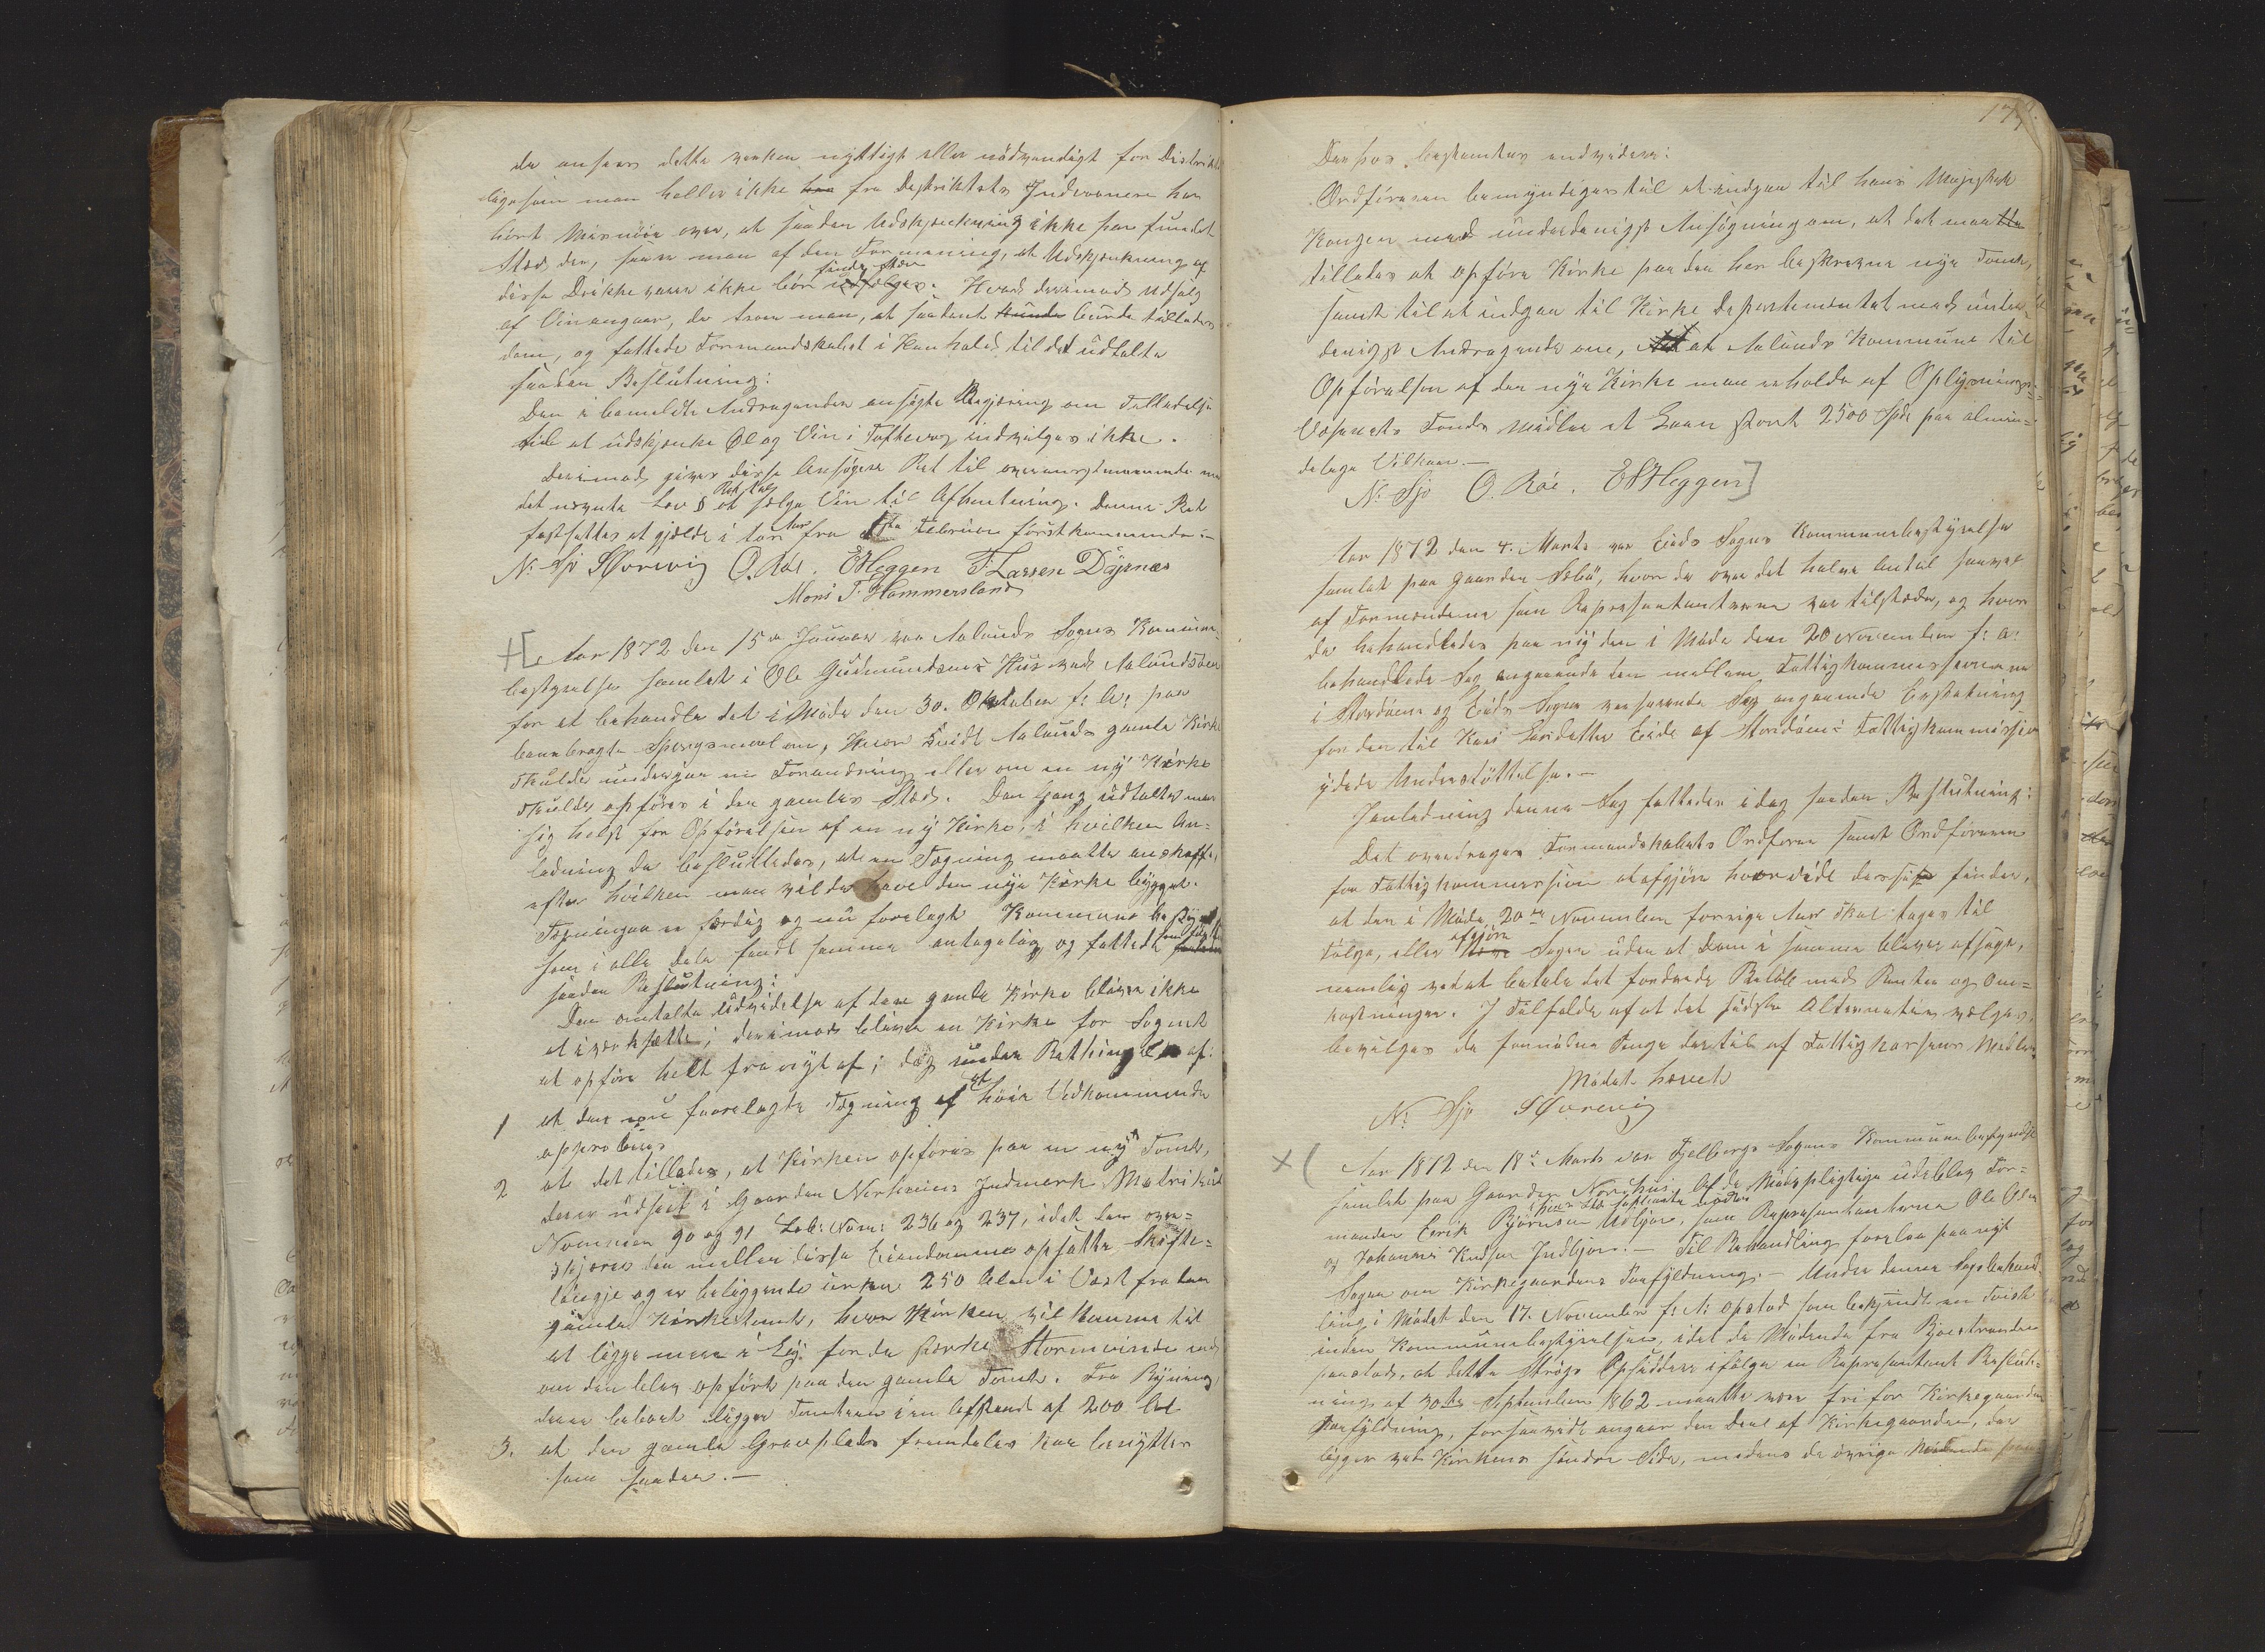 da ansees dette værken nyttigt eller nödvendigt for Distriktet
ligesom man heller ikke har fra Destriktets Indvaanere har
hört Misnöie over, at saadan Udskjænkning ikke har fundet
Sted der, saa er man af den Formening, at Udskjænkning af
finde Sted
disse Drikkevarer ikke bör udsælges. Hvad derimod Udsalg
af Vin angaar, da troer man, at saadant kunde burde tillades
dem, og fattede Formandskabet i Henhold til det udtalte
saadan Beslutning:
Den i bemeldte Andragender ansögte Begjæring om Tilladelse
til at udskjænke Öl og Vin i Toftevaag indvilges ikke.
Derimod gives disse Ansögere Ret til overensstemmende med
det nævnte Lov § at sælge Vin til Afhentning. Denne Ret
fastsattes at gjælde i Aar fra 1ste Februar förstkommende.-
N. Sjo SÖvrevig O. Röe. EHeggen T. Larsen Döjsnæs
Mons T. Hammersland
Aar 1872 den 15de Januar var Aalunds Sogns Kommune-
bestyrelse samlet i Ole Gudmundsens Hus ved Aalundsöen
for at behandle det i Möde den 30. Oktober f: A: paa
banebragte Spørgsmaal om, Hvorvidt Aalunds gamle Kirke
skulde undergaa en Forandring eller om en ny Kirke
skulde opföres i den gamles Sted. Den Gang udtalte man
sig helst for Opförelsen af en ny Kirke, i hvilken An-
ledning da besluttedes, at en Tegning maatte anskaffes,
efter hvilken man vilde have den nye Kirke bygget.
Tegningen er færdig og nu forelagt Kommunebestyrelsen
som i alle Dele fandt samme antagelig og fattede
saadan Beslutning:
Den omtalte Udvidelse af den gamle Kirke bliver ikke
at iværksætte; derimod bliver en Kirke for Sognet
at opföre helt fra nyt af; dog under Betingelse af:
1 at den nu forelagte Tegning af höie Vedkommende
approberes
2 at det tillades, at Kirken opföres paa en ny Tomt,
der er udseet i Gaarden Nerheims Indmark Matrikul
Nummer 90 og 91 Løb: Num: 236 og 237, idet den over-
skjærer den mellem disse Eiendomme opsatte Skifte-
længje og er beliggende cirka 250 Alen i Vest fra den
gamle Kirketomt, hvor Kirken vil komme til
at ligge mere i Læ for de stærke Stormvinde end
om den blev opfört paa den gamle Tomt. Fra Bygning
derer beboet ligger Tomten i en Afstand af 200 Al.
3. at den gamle Gravplads fremdeles kan benyttes
som saadan.-
179.
Derhos bestemtes endvidere:
Ordföreren bemyndiges til at indgaa til hans Majestæt
Kongen med underdanigst Ansögning om, at det maatte
tillades at opföre Kirke paa den her beskrevne nye Tomt,
samt til at indgaa til Kirke Departementet med under-
danigst Andragende om, at Aalunds Kommune til
Opförelsen af den nye Kirke maa erholde af Oplysnings-
Væsenets Fonds Midler et Laan stort 2500 Spdr paa almin-
delige Vilkaar.-
N. Sjo O. Röe. EHeggen
Aar 1872 den 4. Marts var Eids Sogns Kommunebestyrelse
samlet paa Gaarden Sæbö, hvor da over det halve Antal saavel
af Formændene som Repræsentanterne var tilstede, og hvor
da behandledes paa ny den i Möde den 20 November f: A:
behandlede Sag angaaende den mellem Fattigkommissionerne
i Stordöen og Eids Sogne verserende Sag angaaende Erstatning
for den til Kari Larsdatter Eide af Stordöens Fattigkommission
ydede Understöttelse.-
I Anledning denne Sag fattedes idag saadan Beslutning:
Det overdrages Formandskabets Ordförer samt Ordföreren
for Fattigkommissionen at afgjöre hvorvidt disse finder,
at den i Möde 20de November forrige Aar skal tages til
afgjöre
Fölge, eller Sagen uden at Dom i samme bliver afsagt,
nemlig ved at betale det fordrede Belöb med Renter og Om-
kostninger. I Tilfælde af at det sidste Alternativ vælges,
bevilges de fornödne Penge dertil af Fattigkassens Midler.
Mödet hævet
N. Sjo SÖvrevig
Aar 1872 den 18de Marts var Fjelbergs Sogns Kommunebestyrelse
samlet paa Gaarden Norehus. Af de Mödepligtige udeblev For-
manden Eirik Björnsen Udbjoe, som Repræsentanterne Ole Olsen
og Johannes Knudsen Indbjoe.- Til Behandling forelaa paa nyt
Sagen om Kirkegaardens Paafyldning.- Under denne Sags behand-
ling i Mödet den 17. November f: A: opstod som bekjendt en Tvist
inden Kommunebestyrelsen, idet de Mödende fra Bjoestranden
paastod, at dette Strögs Opsiddere ifölge en Repræsentant Beslut-
ning af 30te September 1862 maatte være fri for Kirkegaardens
Paafyldning, forsaavidt angaar den Deel af Kirkegaarden, der
ligger ved Kirkens söndre Side, medens de övrige Mödende paa